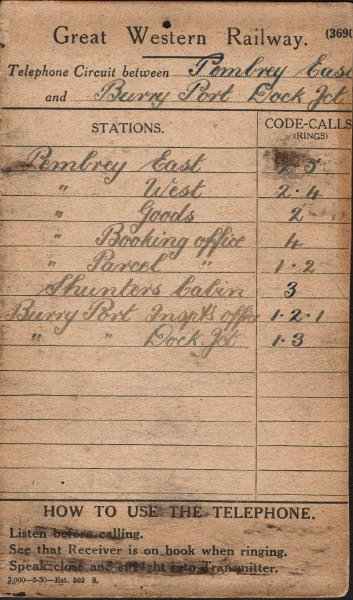 (3690
Great Western Railway.
Telephone Circuit between Pembrey East
and Burry Port Dock Jct
STATIONS. CODE-CALLS (RINGS)
Pembrey East 2·5
" West 2·4
" Goods 2
" Booking office 4
" Parcel " 1·2
Shunters Cabin 3
Burry Port Inspt's office 1·2·1
" " Dock Jct 1·3
HOW TO USE THE TELEPHONE.
Listen before calling.
See that Receiver is on hook when ringing.
Speak close and straight into Transmitter.